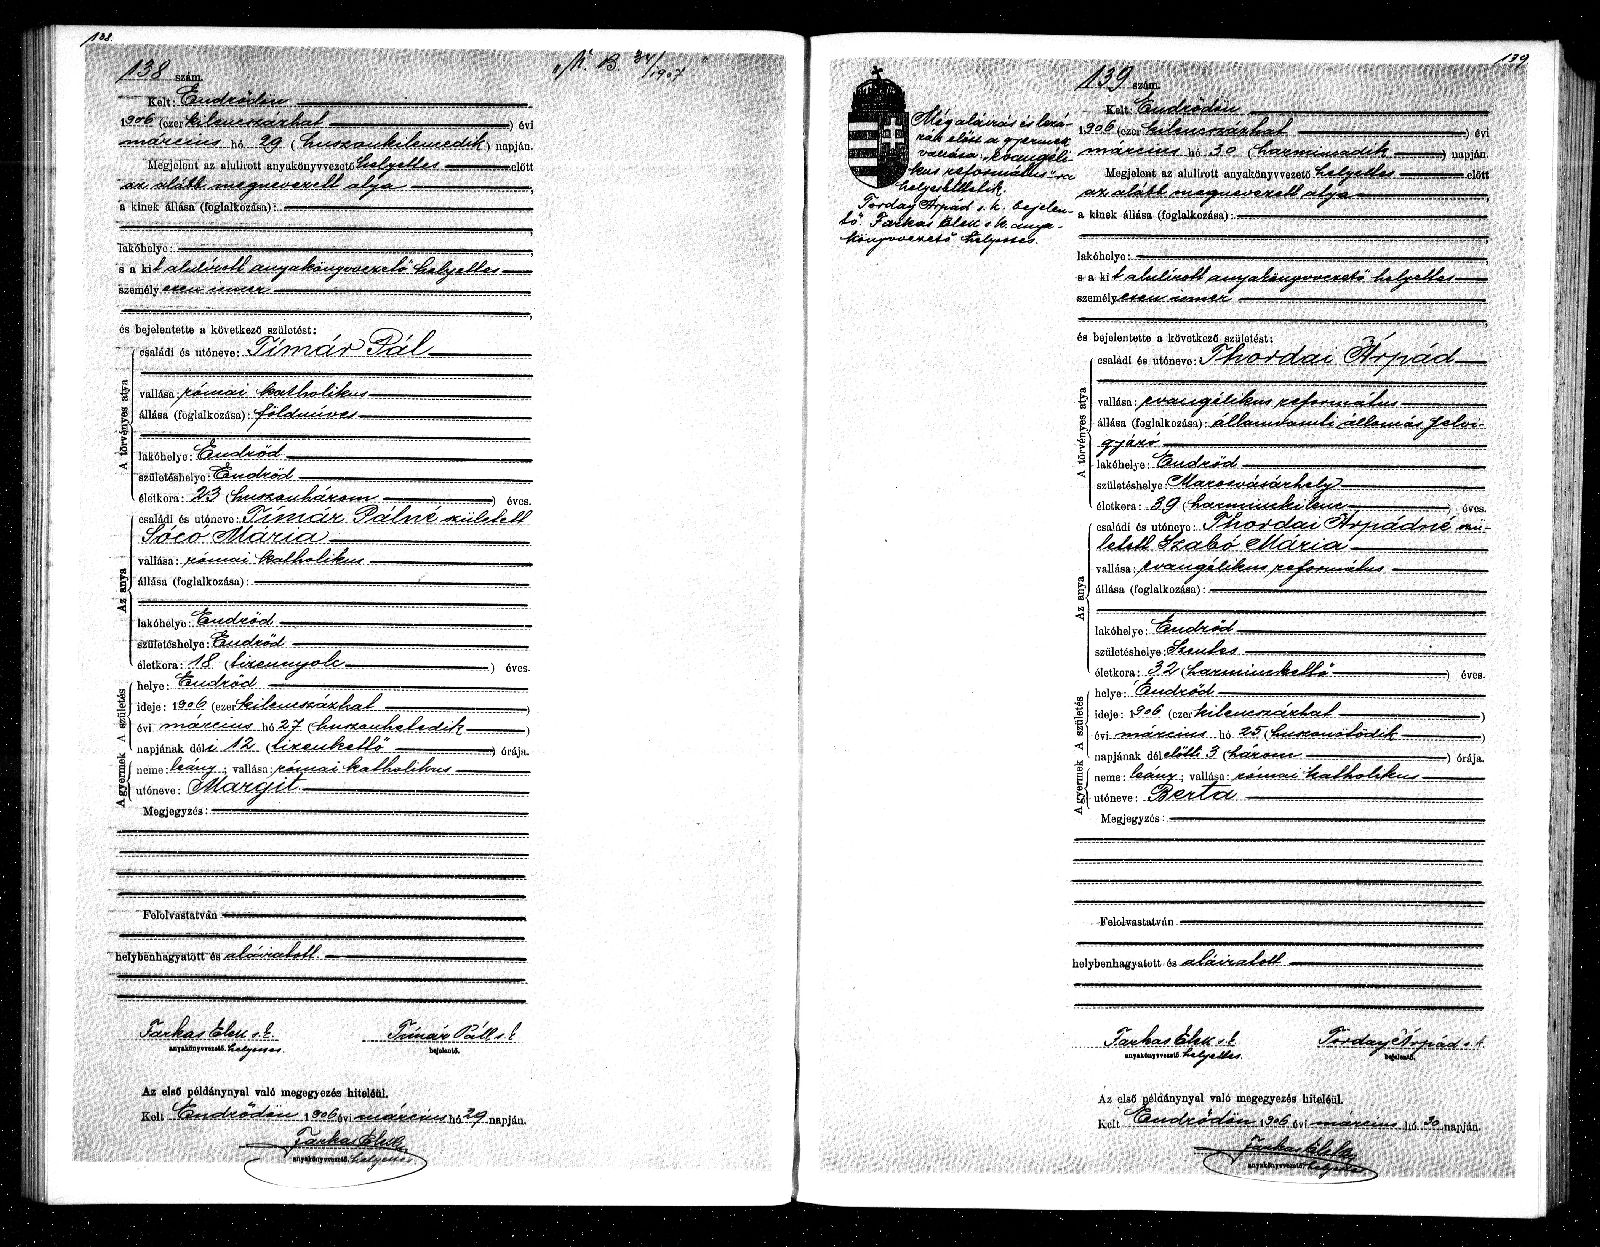 138.
138 szám.
„M. B. 34/1907"
Kelt: Endrődön
1906 (ezer kilenczszázhat) évi
március hó 29 (huszonkilencedik) napján.
Megjelent az alulirott anyakönyvvezető helyettes előtt
az alább megnevezett atya,
a kinek állása (foglalkozása):
lakóhelye:
s a kit alulírott anyakönyvvezető helyettes
személyesen ismer
és bejelentette a következő születést:
A törvényes atya
családi és utóneve: Tímár Pál
vallása: római katholikus
állása (foglalkozása): földmíves
lakóhelye: Endrőd
születéshelye: Endrőd
életkora: 23 (huszonhárom) éves.
Az anya
családi és utóneve: Tímár Pálné született
Sócó Mária
vallása: római katholikus
állása (foglalkozása):
lakóhelye: Endrőd
születéshelye: Endrőd
életkora: 18 (tizennyolc) éves.
A születés
helye: Endrőd
ideje: 1906 (ezer kilencszázhat)
évi március hó 27 (huszonhetedik)
napjának déli 12 (tizenkettő) órája.
A gyermek
neme: leány; vallása: római katholikus
utóneve: Margit
Megjegyzés:
Felolvastatván
helybenhagyatott és aláíratott.
Farkas Elek s. k.
anyakönyvvezető helyettes
Tímár Pál s. k.
bejelentő.
Az első példánynyal való megegyezés hiteléül.
Kelt Endrődön 1906 évi március hó 29 napján.
Farkas Elek
anyakönyvvezető helyettes
139
139 szám.
Még aláírás és lezá-
rás előtt a gyermek
vallása „evangéli-
kus református"-ra
helyesbíttetik.
Torday Árpád s. k. bejelen-
tő. Farkas Elek s. k. anya-
könyvvezető helyettes.
Kelt: Endrődön
1906 (ezer kilencszázhat) évi
március hó 30 (harmincadik) napján.
Megjelent az alulirott anyakönyvvezető helyettes előtt
az alább megnevezett atya
a kinek állása (foglalkozása):
lakóhelye:
s a kit alulírott anyakönyvvezető helyettes
személyesen ismer
és bejelentette a következő születést:
A törvényes atya
családi és utóneve: Thordai Árpád
vallása: evangélikus református
állása (foglalkozása): államvasuti állomás felvi-
gyázó
lakóhelye: Endrőd
születéshelye: Marosvásárhely
életkora: 39 (harminckilenc) éves.
Az anya
családi és utóneve: Thordai Árpádné szü-
letett Szabó Mária
vallása: evangélikus református
állása (foglalkozása):
lakóhelye: Endrőd
születéshelye: Szentes
életkora: 32 (harminckettő) éves.
A születés
helye: Endrőd
ideje: 1906 (ezer kilencszázhat)
évi március hó 25 (huszonötödik)
napjának délelőtti 3 (három) órája.
A gyermek
neme: leány; vallása: római katholikus
utóneve: Berta
Megjegyzés:
Felolvastatván
helybenhagyatott és aláíratott
Farkas Elek s. k.
anyakönyvvezető helyettes.
Torday Árpád s. k.
bejelentő.
Az első példánynyal való megegyezés hiteléül.
Kelt Endrődön 1906 évi március hó 30 napján.
Farkas Elek
anyakönyvvezető helyettes